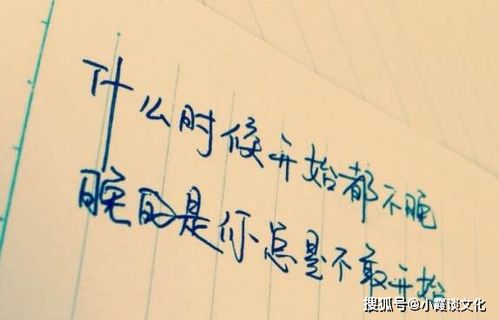 什么时候开始都不晚
晚的是你总是不敢开始
搜狐号@小霞谈文化